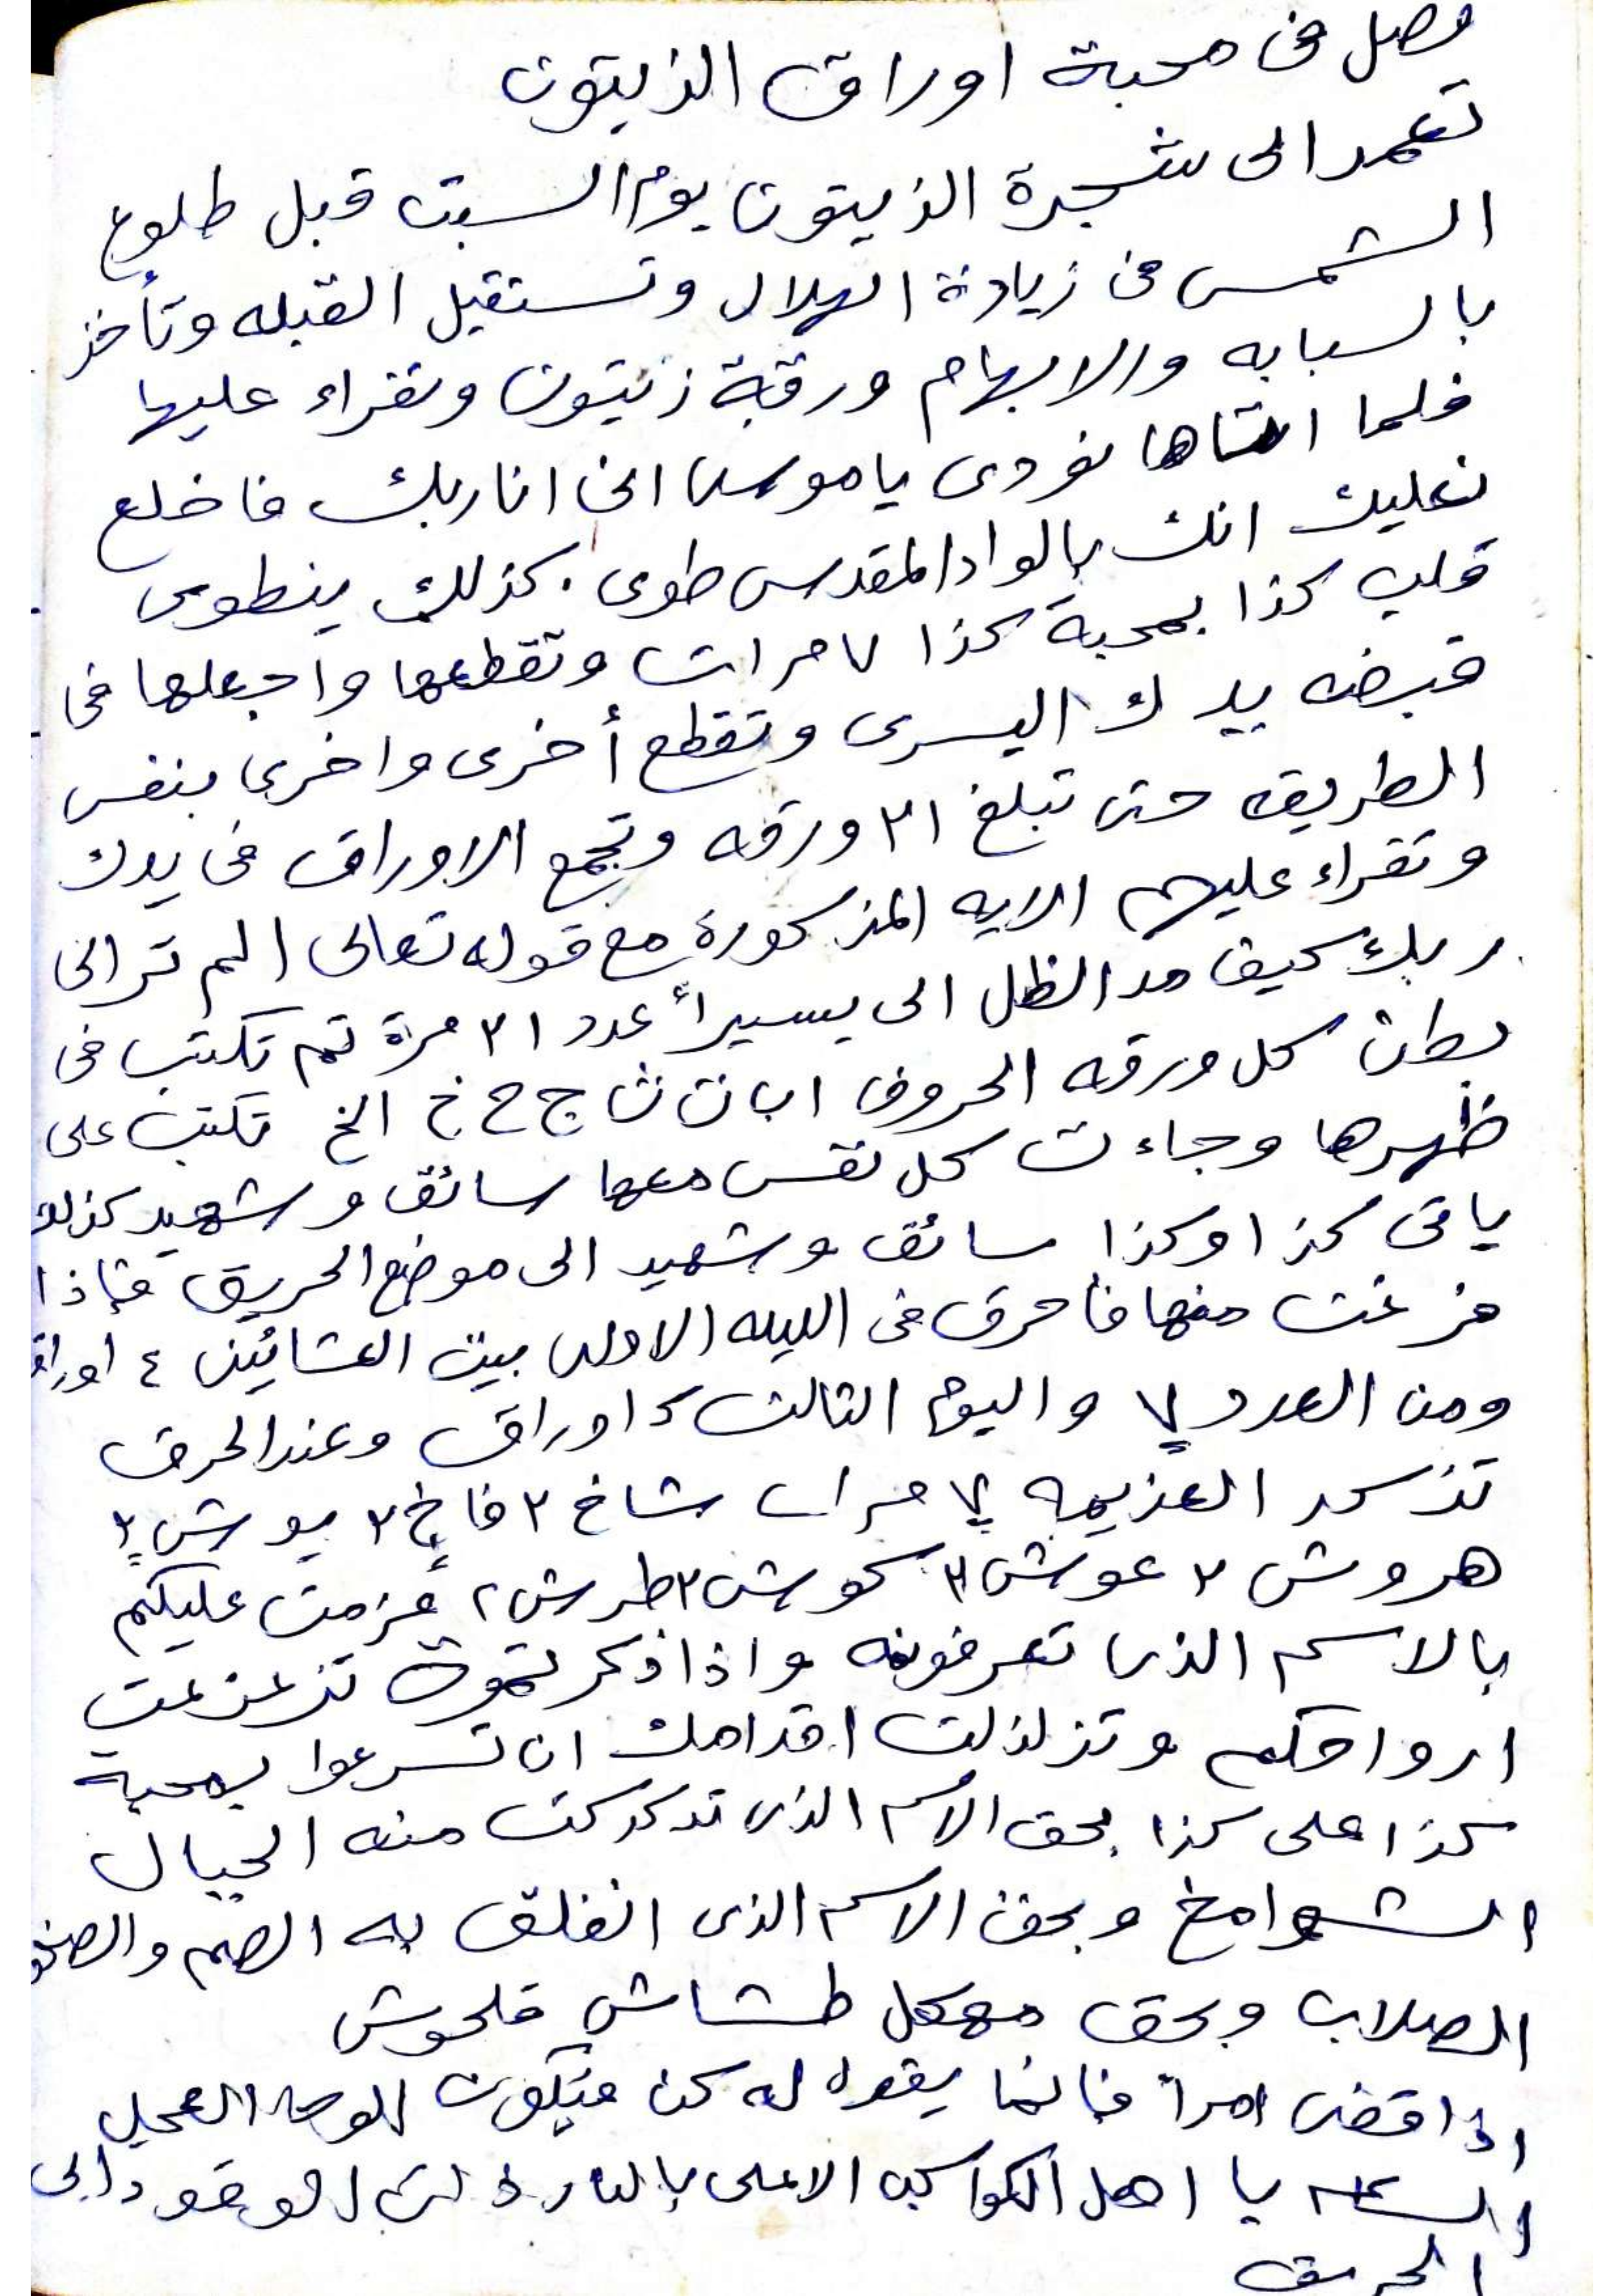 فصل فى محبة اوراق الزيتون
تعمد الى شجرة الزيتون يوم السبت قبل طلوع
الشمس فى زيادة الهلال وتستقبل القبله وتأخذ
بالسبابه والابهام ورقة زيتون وتقراء عليها
فلما اتاها نودى ياموسى انى انا ربك فاخلع
نعليك انك بالواد المقدس طوى . كذلك ينطوى
قلب كذا بمحبة كذا ٧ مرات وتقطعها واجعلها فى
قبضه يدك اليسرى وتقطع أخرى واخرى بنفس
الطريقه حتى تبلغ ٢١ ورقه وتجمع الاوراق فى يدك
وتقراء عليهم الايه المذكورة مع قوله تعالى الم تر الى
ربك كيف مد الظل الى يسيراً عدد ٢١ مرة ثم تكتب فى
بطن كل ورقه الحروف ا ب ت ث ج ح خ الخ تكتب على
ظهرها وجاءت كل نفس معها سائق وشهيد كذلك
ياتى كذا وكذا سائق وشهيد الى موضع الحريق فإذا
فرغت منها فاحرق فى الليله الاولى بين العشائين ٤ اوراق
ومن العدد ٧ واليوم الثالث اوراق وعند الحرق
تذكر العزيمه ٧ مرات شاخ ٢ فاخ ٢ يوش ٢
هروش ٢ عوش ٢ كوش ٢ طرش ٢ عزمت عليكم
بالاسم الذى تعرفونه واذا ذكر تزعزعت
ارواحكم وتزلزلت اقدامك ان تسرعوا بمحبة
كذا على كذا بحق الاسم الذى تدكدكت منه الجبال
الشوامخ وبحق الاسم الذى انفلق به الصم والصخو
الصلاب وبحق مهكل طشاش قلحوش
اذا قضى امراً فانما يقول له كن فيكون الوحا العجل
الساعه يا اهل الكواكب الاعلى بالنار ذات الوقود الى
الحريق